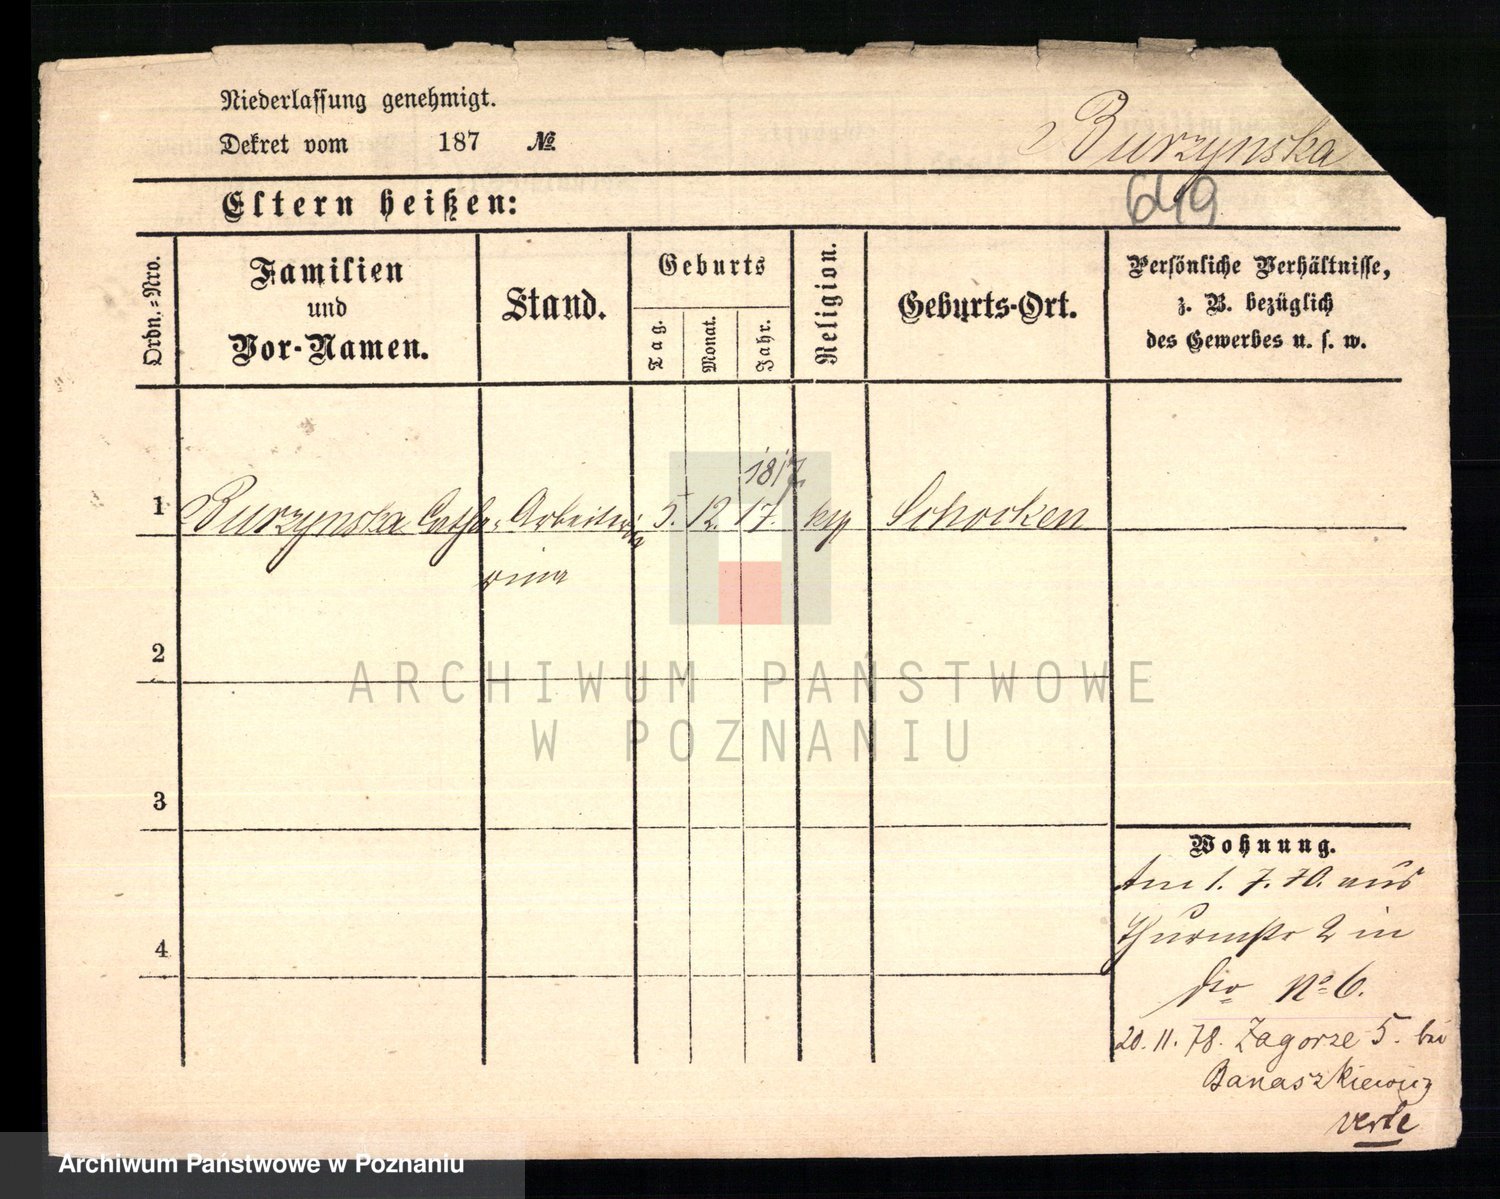 Niederlassung genehmigt.
Dekret vom 187 №
Burzynska
649
Eltern heißen:
Ordn.-Nro.
Familien und Vor-Namen.
Stand.
Geburts
Tag.
Monat.
Jahr.
Religion.
Geburts-Ort.
Persönliche Verhältnisse,
z. B. bezüglich
des Gewerbes u. s. w.
1817
1 Burzynska Catha- Arbeiterin 5. 12. 17. Schocken
rina
2
3
4
Wohnung.
Am 1. 7. 70. aus
Thurmstr 2 in
No 6.
20. 11. 78. Zagorze 5. bei
Banaszkiewicz
ARCHIWUM PAŃSTWOWE
W POZNANIU
Archiwum Państwowe w Poznaniu